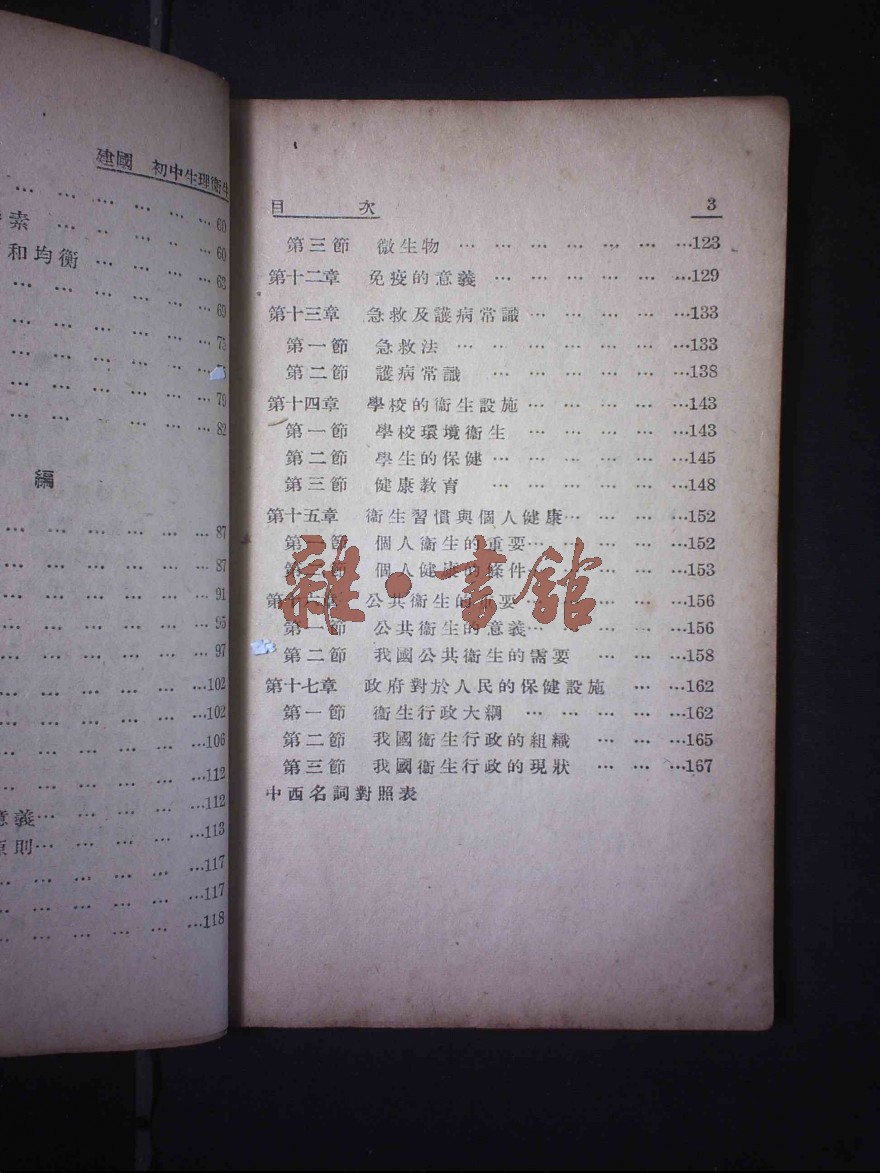 建國 初中生理衞生
… … … … … … 60
素 … … … … … 60
和均衡 … … … … 63
… … … … … … 69
… … … … … …
… … … … … …
… … … … … … 79
… … … … … … 82
編
… … … … … … 87
… … … … … … 87
… … … … … … 91
… … … … … … 95
… … … … … … 97
… … … … … …102
… … … … … …102
… … … … … …106
… … … … … …112
… … … … … …112
意義… … … … …113
原則… … … … …
… … … … … …117
… … … … … …117
… … … … … …118
目 次 3
第三節 微生物 … … … … … … …123
第十二章 免疫的意義 … … … … … …129
第十三章 急救及護病常識 … … … … …133
第一節 急救法 … … … … … … …133
第二節 護病常識 … … … … … …138
第十四章 學校的衞生設施 … … … … …143
第一節 學校環境衞生 … … … … …143
第二節 學生的保健 … … … … … …145
第三節 健康教育 … … … … … …148
第十五章 衞生習慣與個人健康… … … …152
第一節 個人衞生的重要… … … … …152
第二節 個人健康的條件… … … … …153
第十六章 公共衞生的重要 … … … … …156
第一節 公共衞生的意義… … … … …156
第二節 我國公共衞生的需要 … … …158
第十七章 政府對於人民的保健設施 … …162
第一節 衞生行政大綱 … … … … …162
第二節 我國衞生行政的組織 … … …165
第三節 我國衞生行政的現狀 … … …167
中西名詞對照表
雜·書館